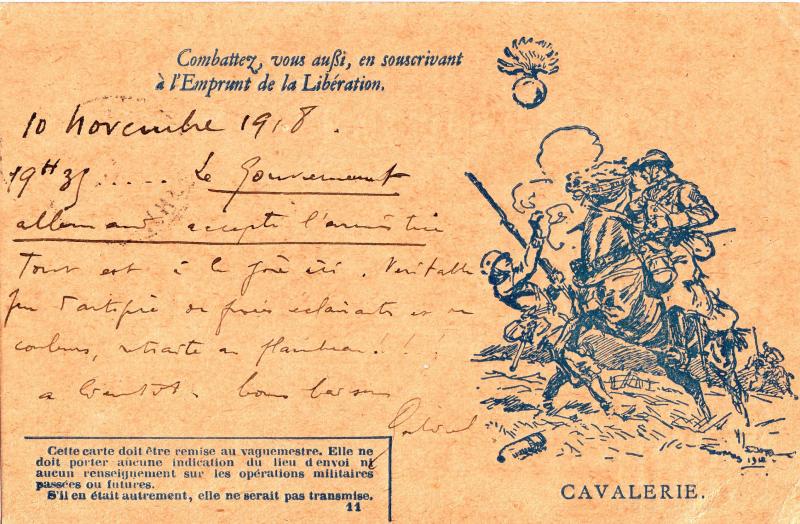 Combattez, vous aussi, en souscrivant
à l'Emprunt de la Libération.
10 novembre 1918.
19H35 ..... Le Gouvernement
allemand accepte l'armistice
Tout est à la joie ici. Véritable
feu d'artifice de fusées éclairantes et en
couleurs, retraite au flambeau!!!
à bientôt. bons baisers
Cette carte doit être remise au vaguemestre. Elle ne
doit porter aucune indication du lieu d'envoi ni
aucun renseignement sur les opérations militaires
passées ou futures.
S'il en était autrement, elle ne serait pas transmise.
11
1918
CAVALERIE.